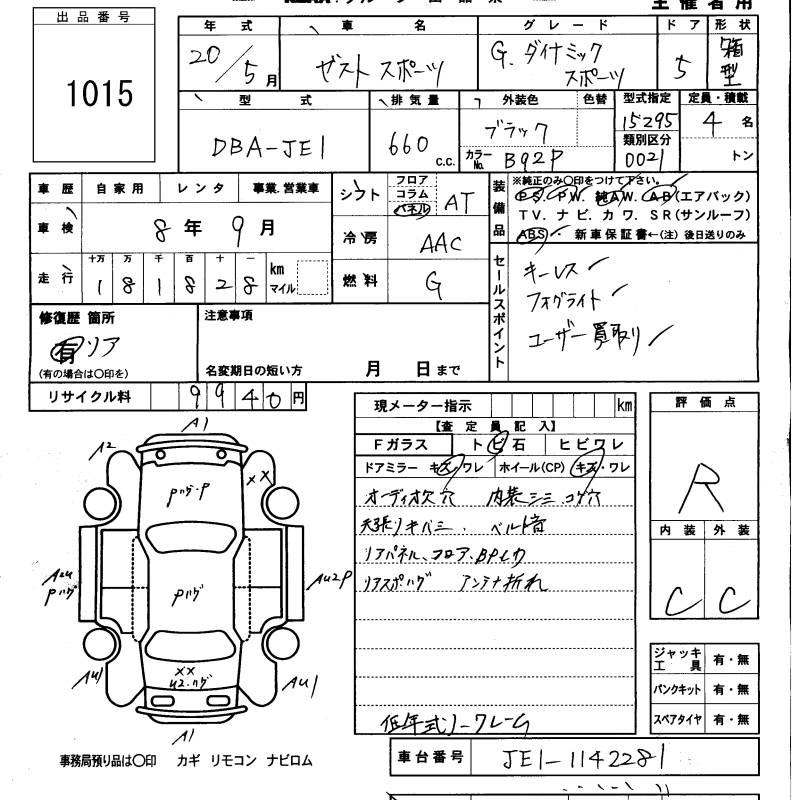 出品番号
1015
主催者用
年式 車名 グレード ドア 形状
20/5月 ゼスト スポーツ G.ダイナミック スポーツ 5 箱型
型式 排気量 外装色 色替 型式指定 定員・積載
DBA-JE1 660 C.C. ブラック 15295 4名
カラーNo. B92P 類別区分 0021 トン
車歴 自家用 レンタ 事業.営業車
車検 8年9月
走行 十万 万 千 百 十 一
1 8 1 8 2 8 km マイル
シフト フロア コラム パネル AT
冷房 AAC
燃料 G
装備品
※純正のみ○印をつけて下さい。
P.S. P.W. 純AW. A.B(エアバック)
TV. ナビ. カワ. SR(サンルーフ)
ABS 新車保証書←(注) 後日送りのみ
セールスポイント
キーレス
フォグライト
ユーザー買取り
修復歴 箇所
有 リア
(有の場合は○印を)
注意事項
名変期日の短い方 月 日まで
リサイクル料 9940円
現メーター指示 km
【査定員記入】
Fガラス トビ石 ヒビワレ
ドアミラー キズ・ワレ ホイール(CP) キズ・ワレ
オーディオ欠穴 内装シミ.コゲ穴
天張りキバミ. ベルト音
リアパネル、フロア.BPヒカ
リアスポハゲ アンテナ折れ
低年式J-クレーム
評価点
R
内装 外装
C C
ジャッキ工具 有・無
パンクキット 有・無
スペアタイヤ 有・無
A1
A2
XX
Pハゲ・P
A2U
Pハゲ
Pハゲ
AU2P
XX
U2.ハゲ
AU1
AU1
A1
事務局預り品は○印 カギ リモコン ナビロム
車台番号 JE1-1142281